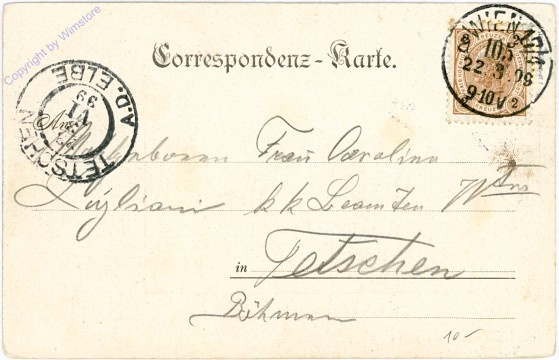 Copyright by Wimstore
Correspondenz-Karte.
WIEN
105
22. 3. 98
9-10 V
2
TETSCHEN
A.D. ELBE
99
Frau Carolina
k k Beamten
in Tetschen
Böhmen
10-